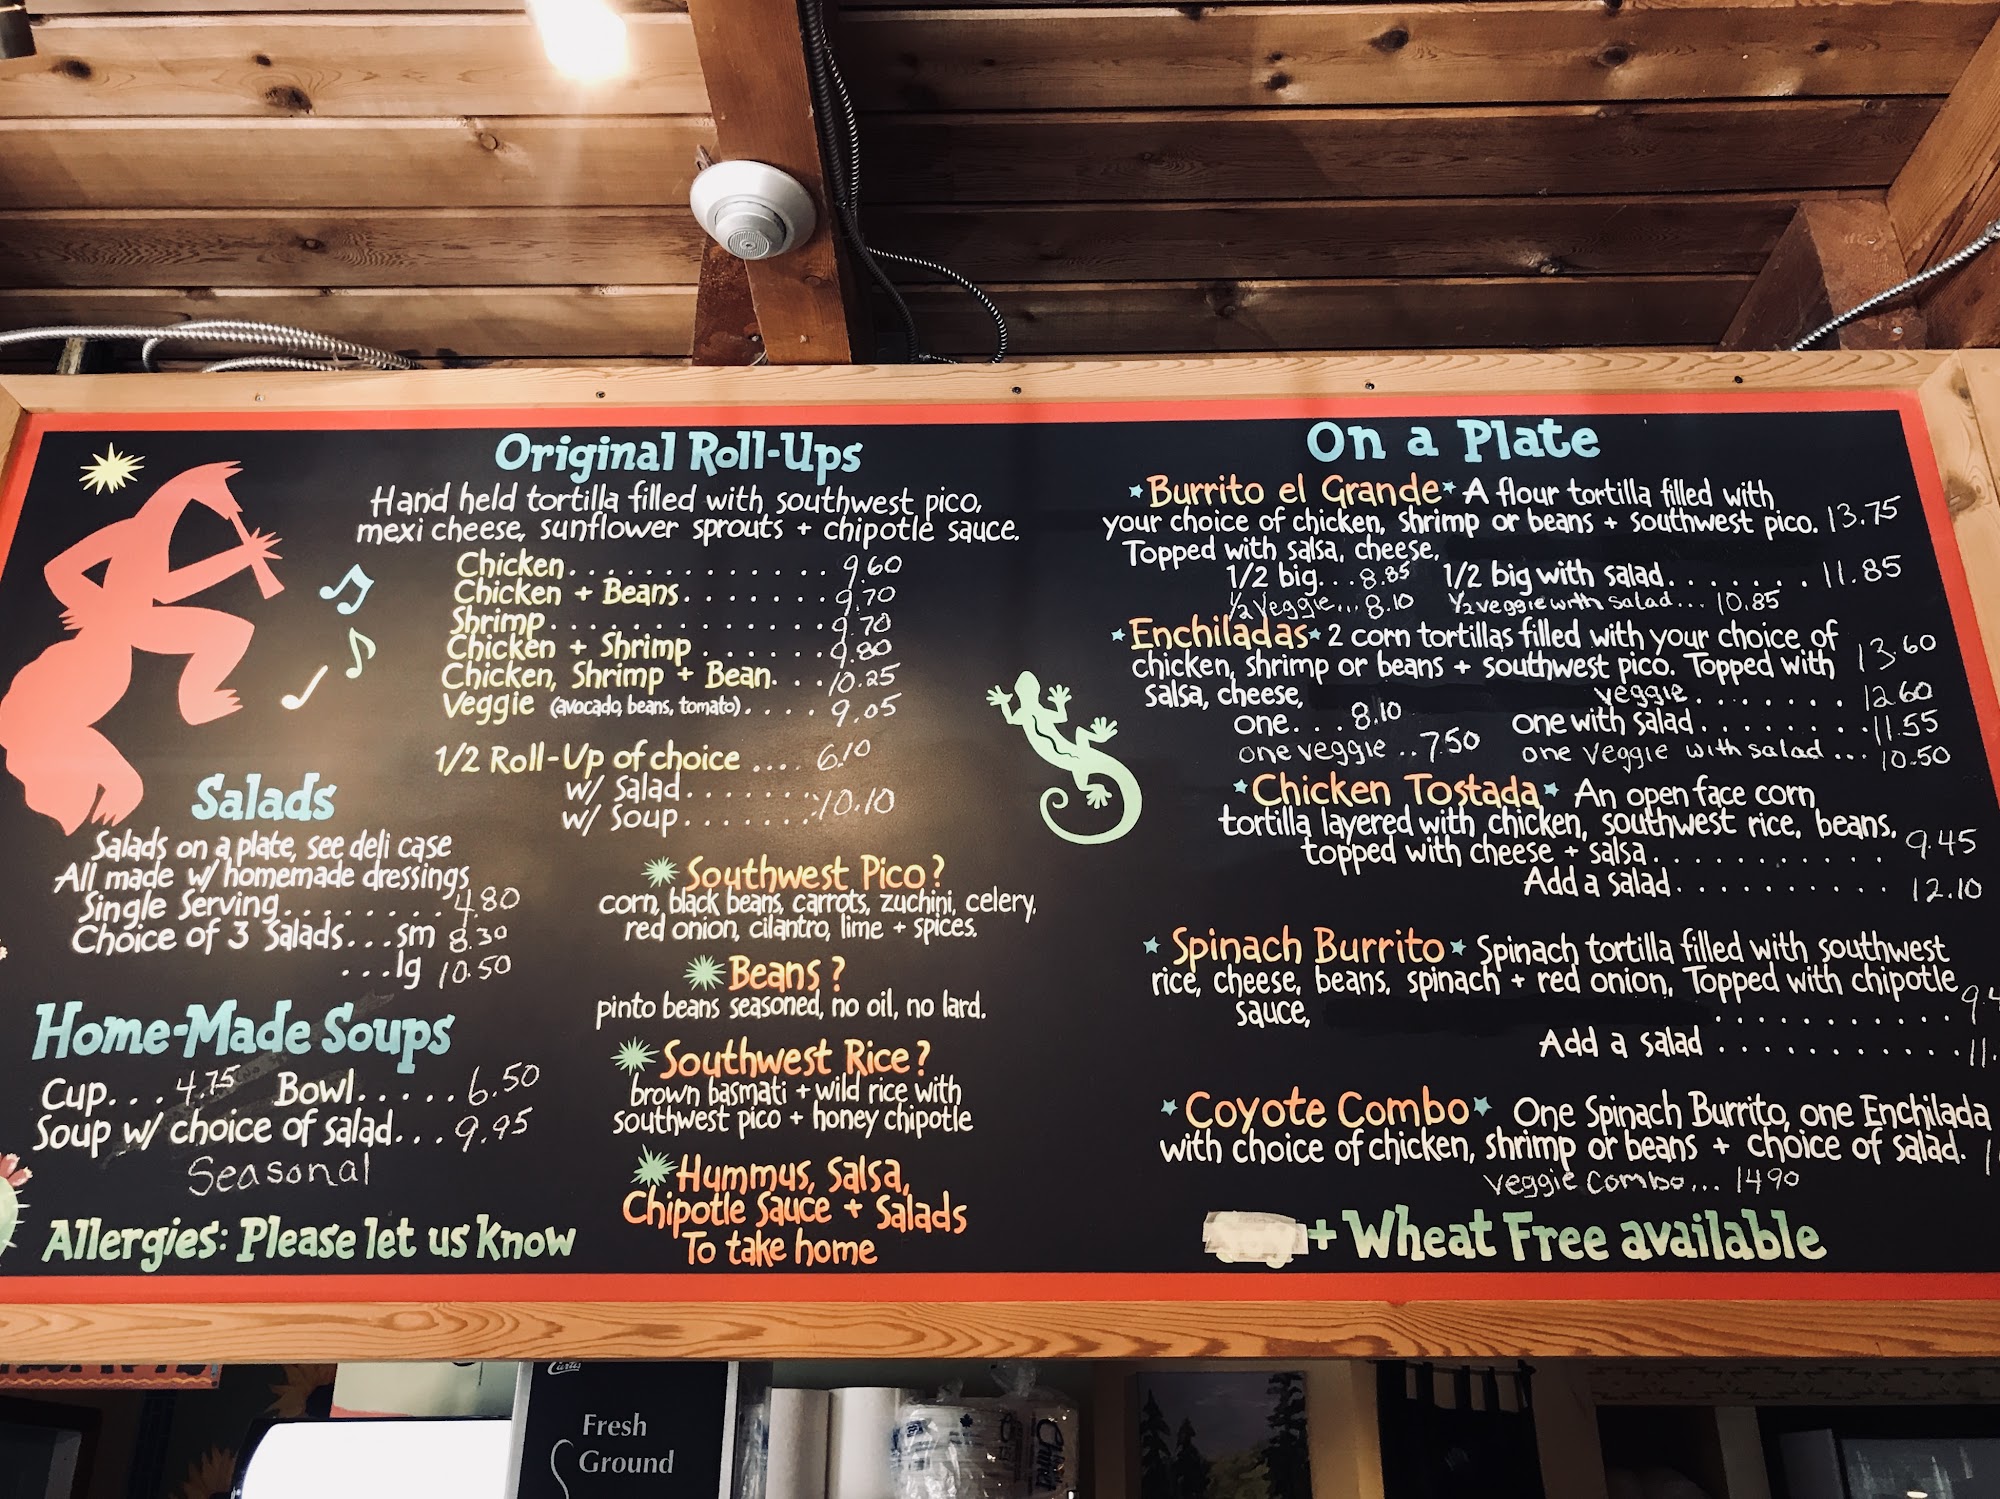 Original Roll-Ups
Hand held tortilla filled with southwest pico,
mexi cheese, sunflower sprouts + chipotle sauce.
Chicken............. 9.60
Chicken + Beans....... 9.70
Shrimp............. 9.70
Chicken + Shrimp...... 9.80
Chicken, Shrimp + Bean... 10.25
Veggie (avocado, beans, tomato).... 9.05
1/2 Roll-Up of choice .... 6.10
w/ Salad.......
w/ Soup....... 10.10
Salads
Salads on a plate, see deli case
All made w/ homemade dressings
Single Serving........ 4.80
Choice of 3 Salads...sm 8.30
...lg 10.50
Home-Made Soups
Cup... 4.75 Bowl..... 6.50
Soup w/ choice of salad... 9.95
Seasonal
Allergies: Please let us know
Southwest Pico?
corn, black beans, carrots, zuchini, celery,
red onion, cilantro, lime + spices.
Beans?
pinto beans seasoned, no oil, no lard.
Southwest Rice?
brown basmati + wild rice with
southwest pico + honey chipotle
Hummus, Salsa,
Chipotle Sauce + Salads
To take home
On a Plate
Burrito el Grande A flour tortilla filled with
your choice of chicken, shrimp or beans + southwest pico. 13.75
Topped with salsa, cheese,
1/2 big...8.85 1/2 big with salad....... 11.85
1/2 Veggie... 8.10 1/2 veggie with salad... 10.85
Enchiladas 2 corn tortillas filled with your choice of
chicken, shrimp or beans + southwest pico. Topped with 13.60
salsa, cheese, veggie....... 12.60
one... 8.10 one with salad......... 11.55
one veggie ..7.50 one veggie with salad ... 10.50
Chicken Tostada An open face corn
tortilla layered with chicken, southwest rice, beans,
topped with cheese + salsa........... 9.45
Add a salad.......... 12.10
Spinach Burrito Spinach tortilla filled with southwest
rice, cheese, beans, spinach + red onion, Topped with chipotle
sauce, ...........
Add a salad ........... 11.
Coyote Combo One Spinach Burrito, one Enchilada
with choice of chicken, shrimp or beans + choice of salad.
veggie combo... 14.90
+ Wheat Free available
Curtis
Fresh
Ground
Chinet